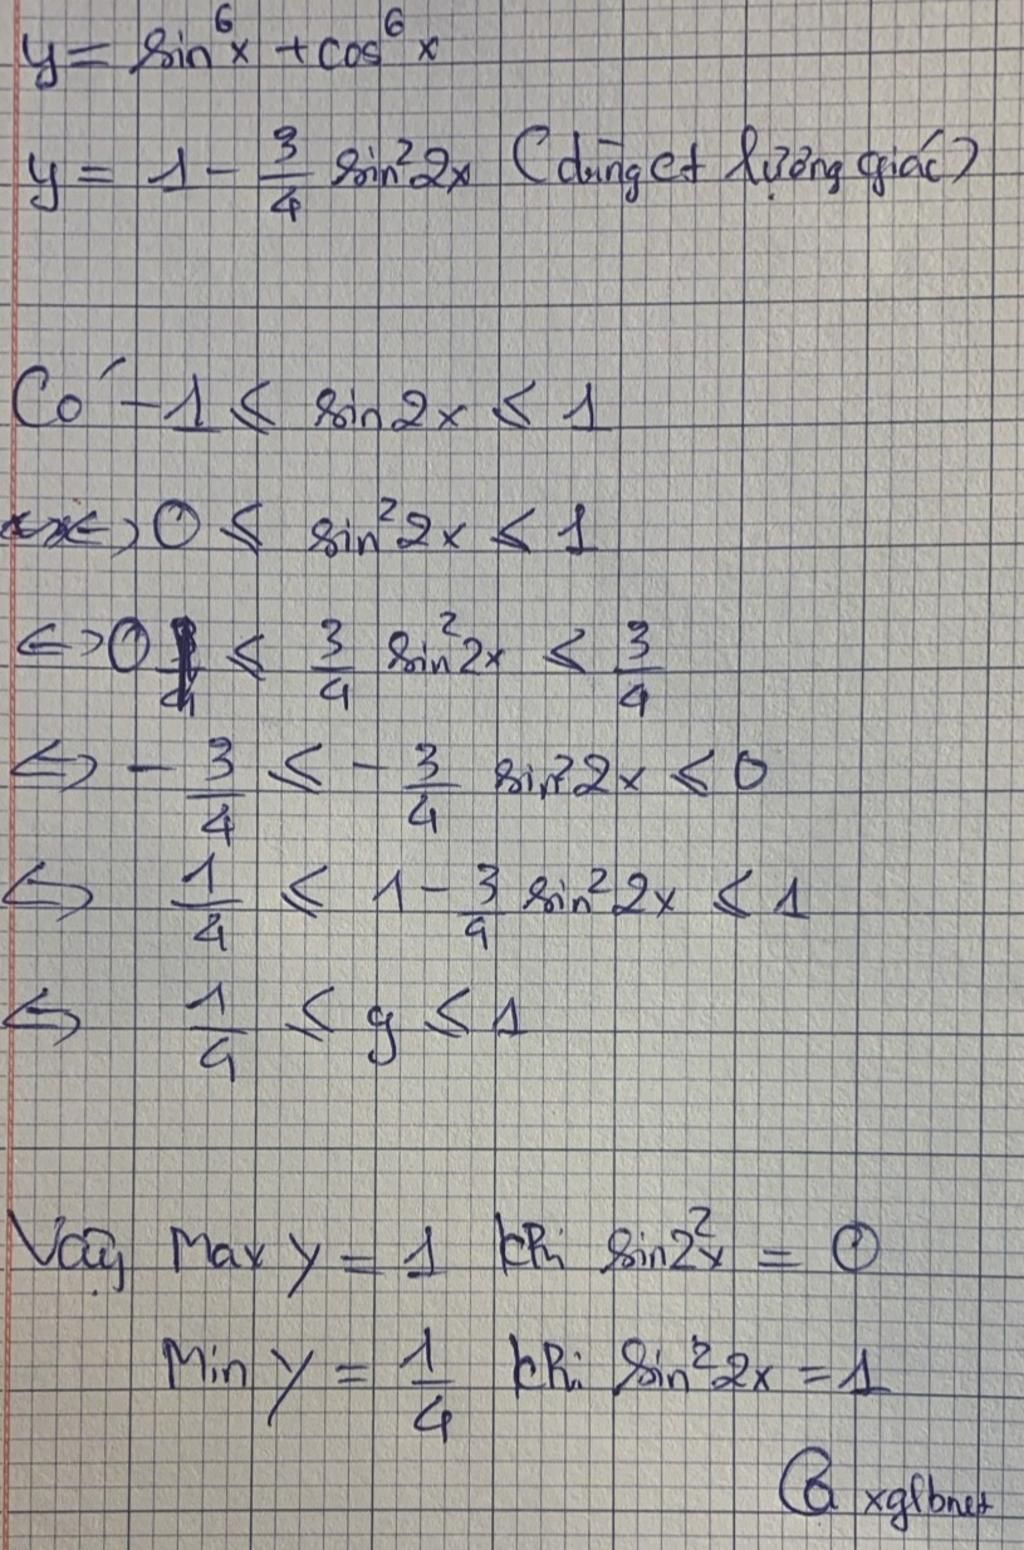 y = sin⁶x + cos⁶x
y = 1 - 3/4 sin²2x (dùng ct lượng giác)
Có -1 ≤ sin2x ≤ 1
<=> 0 ≤ sin²2x ≤ 1
<=> 0 ≤ 3/4 sin²2x ≤ 3/4
<=> - 3/4 ≤ - 3/4 sin²2x ≤ 0
<=> 1/4 ≤ 1 - 3/4 sin²2x ≤ 1
<=> 1/4 ≤ y ≤ 1
Vậy Max y = 1 khi sin²2x = 0
Min y = 1/4 khi sin²2x = 1